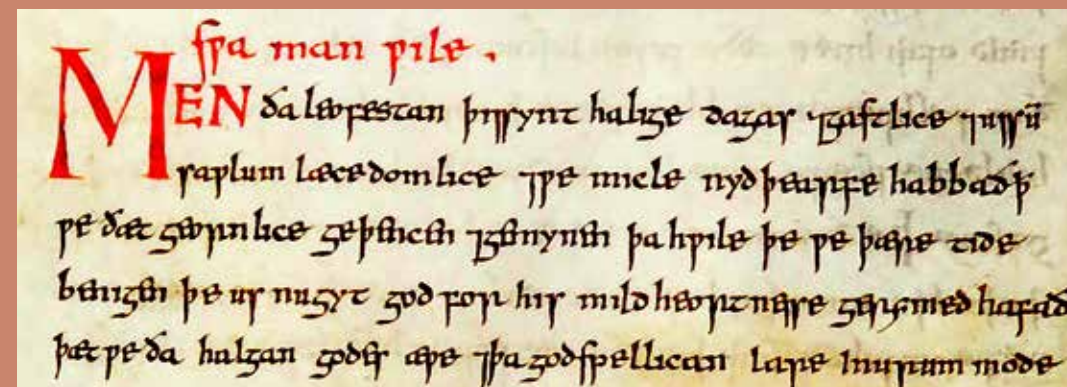 swa man wile .
MEN ða leofestan þis synt halige dagas ⁊gastlice ⁊ussū
sawlum læcedomlice ⁊we micle nydþearfe habbað ꝥ
we ðæt geornlice geþencen ⁊gemynen þa hwile þe we þære tide
þe us nugyt god for his mildheortnesse gerymed hafað
þæt we ða halgan godes æwe ⁊þa godspellican lare inurum mode